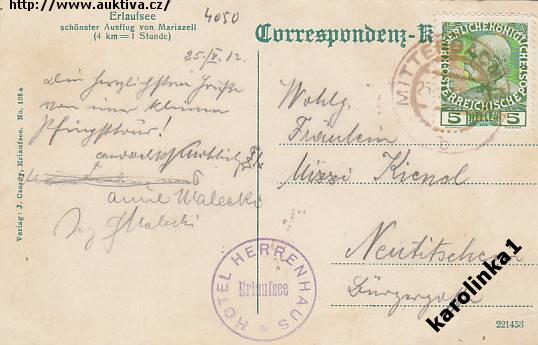 http://www.auktiva.cz/
Erlaufsee
schönster Ausflug von Mariazell
(4 km = 1 Stunde)
4050
Correspondenz-K
25/V. 12.
Die herzlichsten Grüße
von einer kleinen
Pfingsttour!
Wohlg.
Fräulein
Mizzi Kienel
Neutitschein
Bürgergasse
MITTERB
KAISERLICHE KÖNIGLICHE
ÖSTERREICHISCHE POST
5 HELLER 5
HOTEL HERRENHAUS
Erlaufsee
Verlag: J. Czerny, Erlaufsee. No. 158a
221453
karolinka1